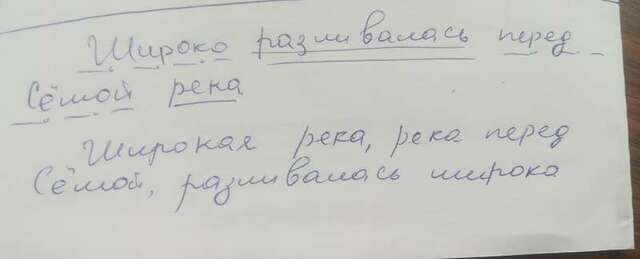 Широко разливалась перед
Сёмой река
Широкая река, река перед
Сёмой, разливалась широка